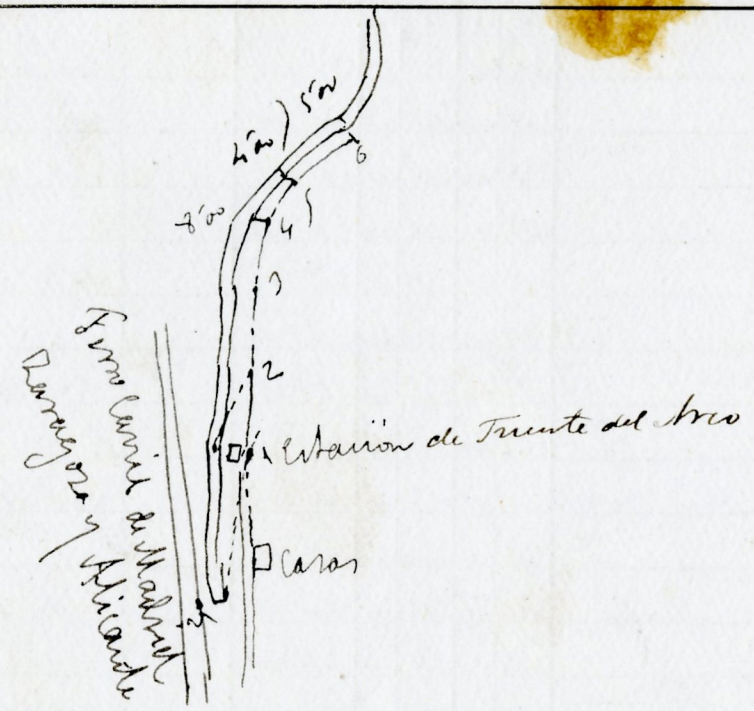 5'00
4'00
8'00
6
4
3
2
1
Estación de Fuente del Arco
Casas
Ferro Carril de Madrid
Zaragoza y Alicante